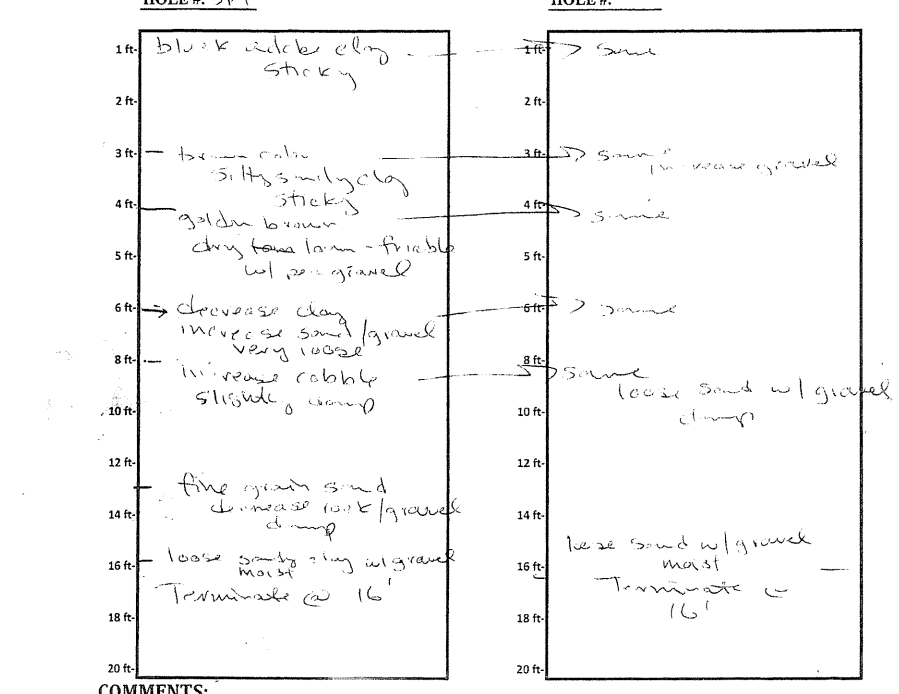 HOLE #:
HOLE #:
1 ft-
black adobe clay
sticky
2 ft-
3 ft-
brown color
silty sandy clay
sticky
4 ft-
golden brown
5 ft-
dry loam - friable
w/ pea gravel
6 ft-
decrease clay
increase sand/gravel
very loose
8 ft-
increase cobble
slightly damp
10 ft-
12 ft-
fine grain sand
decrease rock/gravel
14 ft-
damp
loose sandy clay w/ gravel
16 ft-
moist
Terminate @ 16'
18 ft-
20 ft-
1 ft-
same
2 ft-
3 ft-
same
increase gravel
4 ft-
same
5 ft-
6 ft-
same
8 ft-
same
loose sand w/ gravel
10 ft-
damp
12 ft-
14 ft-
loose sand w/ gravel
16 ft-
moist
Terminate @
16'
18 ft-
20 ft-
COMMENTS: